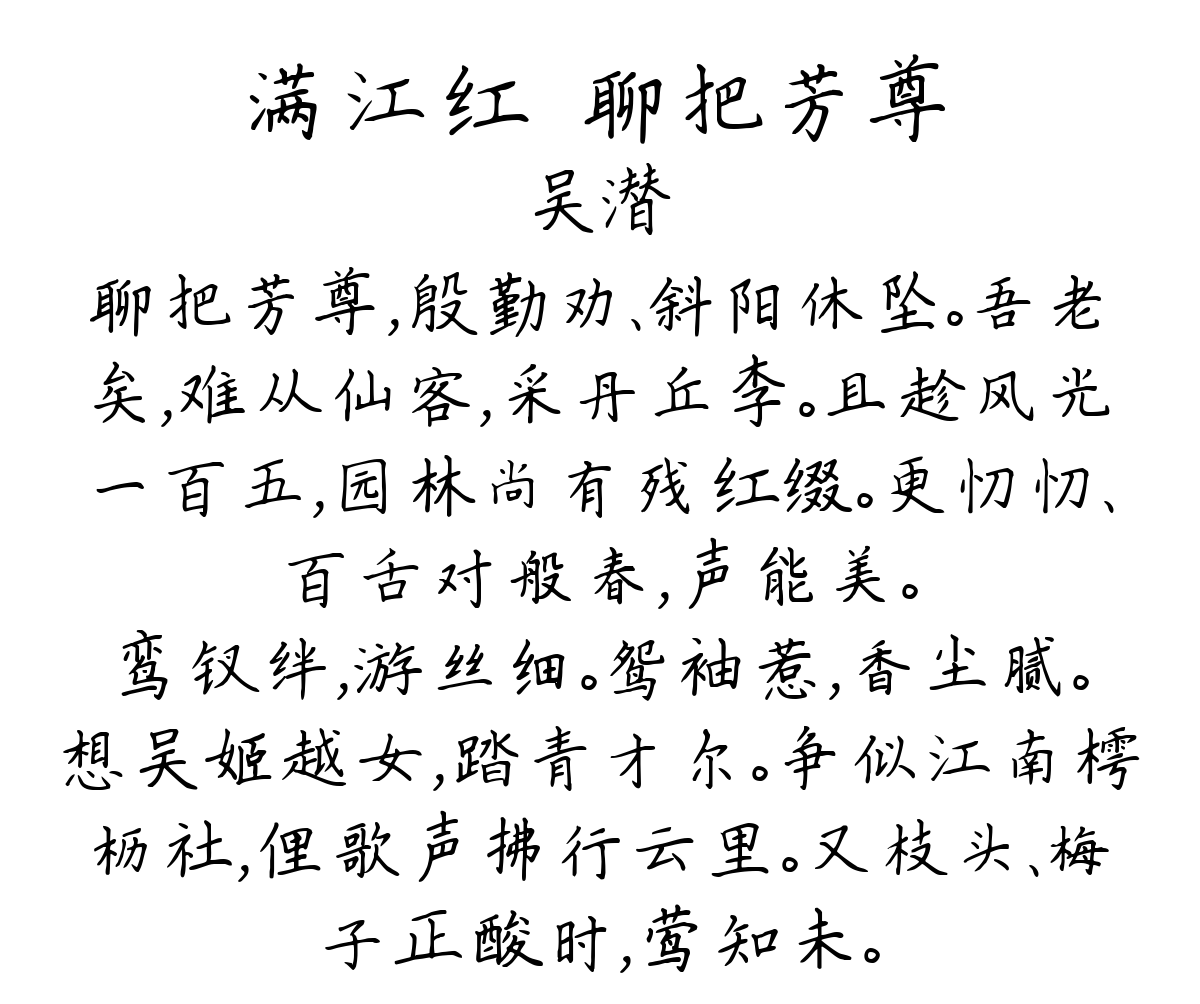 满江红 聊把芳尊
吴潜
聊把芳尊,殷勤劝、斜阳休坠。吾老
矣,难从仙客,采丹丘李。且趁风光
一百五,园林尚有残红缀。更忉忉、
百舌对般春,声能美。
鸾钗绊,游丝细。鸳袖惹,香尘腻。
想吴姬越女,踏青才尔。争似江南樗
枥社,俚歌声拂行云里。又枝头、梅
子正酸时,莺知未。